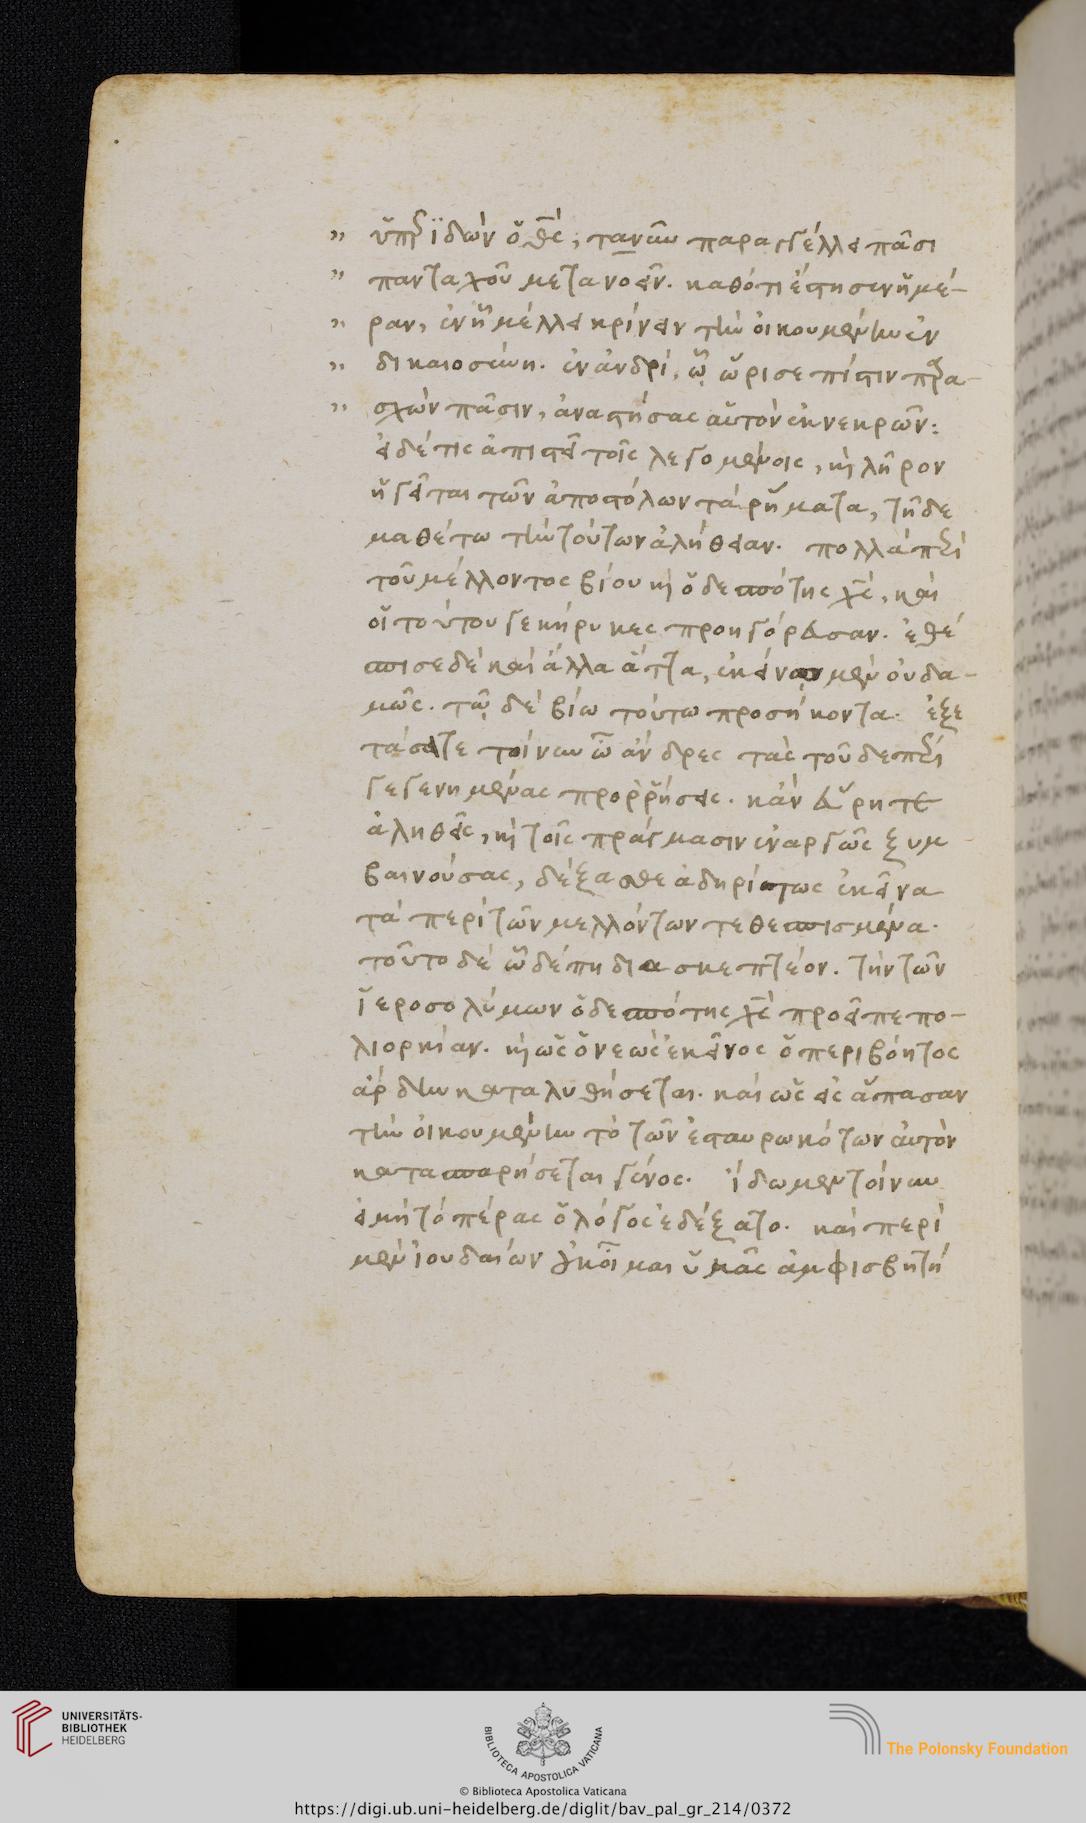 ὑπεριδὼν ὁ θς, τανῦν παραγγέλλει πᾶσι
πανταχοῦ μετανοεῖν. καθότι ἔστησεν ἡμέ-
ραν, ἐν ᾗ μέλλει κρίνειν τὴν οἰκουμένην ἐν
δικαιοσύνῃ. ἐν ἀνδρί, ᾧ ὥρισε πίστιν παρα-
σχὼν πᾶσιν, ἀναστήσας αὐτὸν ἐκ νεκρῶν:
εἰ δέ τις ἀπιστεῖ τοῖς λεγομένοις, καὶ λῆρον
ἡγεῖται τῶν ἀποστόλων τὰ ῥήματα, τῇδε
μαθέτω τὴν τούτων ἀλήθειαν. πολλὰ περὶ
τοῦ μέλλοντος βίου καὶ ὁ δεσπότης χς, καὶ
οἱ τούτου γε κήρυκες προηγόρευσαν. ἐθέ
σπισε δὲ καὶ ἄλλα ἄττα, ἐκείνῳ μὲν οὐδα-
μῶς. τῷ δὲ βίῳ τούτῳ προσήκοντα. ἐξε
τάσατε τοίνυν ὦ ἄνδρες τὰς τοῦδε περὶ
γεγενημένας προρρήσεις. κἂν εὕρητε
ἀληθεῖς, καὶ τοῖς πράγμασιν ἐναργῶς ξυμ
βαινούσας, δέξασθε ἀδηρίτως ἐκεῖνα
τὰ περὶ τῶν μελλόντων τεθεσπισμένα.
τοῦτο δὲ ὧδέ πη διασκεπτέον. τὴν τῶν
ἱεροσολύμων ὁ δεσπότης χς προεῖπε πο-
λιορκίαν. καὶ ὡς ὁ νεὼς ἐκεῖνος ὁ περιβόητος
ἄρδην καταλυθήσεται. καὶ ὡς εἰς ἅπασαν
τὴν οἰκουμένην τὸ τῶν ἐσταυρωκότων αὐτὸν
κατασπαρήσεται γένος. ἴδωμεν τοίνυν
εἰ μὴ τὸ πέρας ὁ λόγος ἐδέξατο. καὶ περὶ
μὲν ἰουδαίων οὐκ οἶμαι ὑμᾶς ἀμφισβητή
UNIVERSITÄTS-
BIBLIOTHEK
HEIDELBERG
BIBLIOTECA APOSTOLICA VATICANA
© Biblioteca Apostolica Vaticana
The Polonsky Foundation
https://digi.ub.uni-heidelberg.de/diglit/bav_pal_gr_214/0372